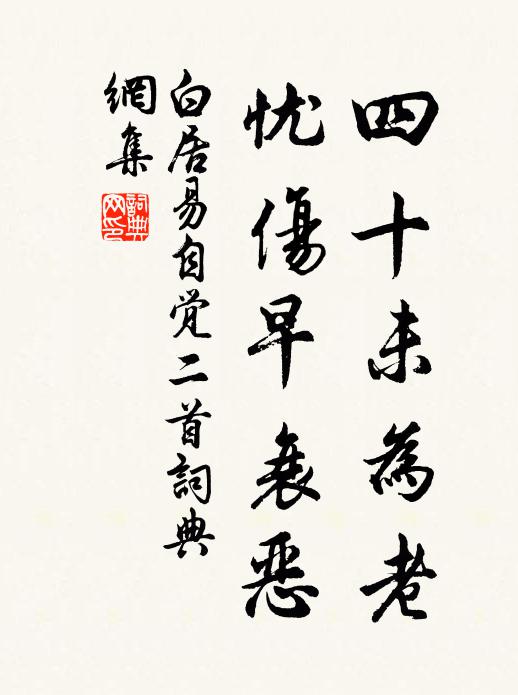 四十未為老
忧傷早衰惡
白居易自觉二首詞典
網集
詞典
网印